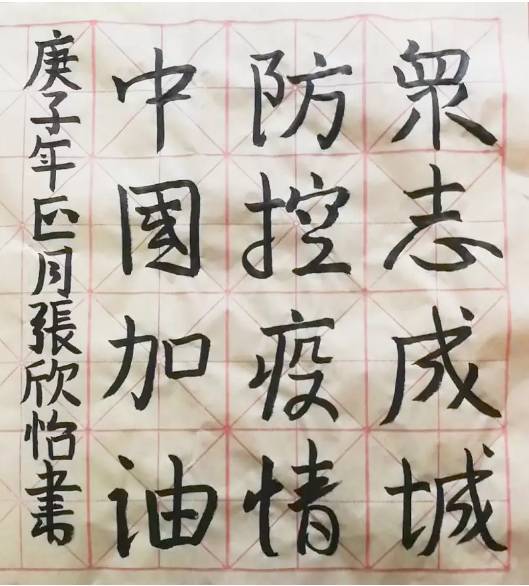 衆志成城
防控疫情
中國加油
庚子年正月張欣怡書